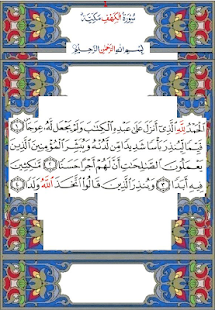 سُورَةُ الْكَهْفِ مَكِّيَّةٌ
بِسْمِ اللَّهِ الرَّحْمَٰنِ الرَّحِيمِ
الْحَمْدُ لِلَّهِ الَّذِي أَنْزَلَ عَلَىٰ عَبْدِهِ الْكِتَابَ وَلَمْ يَجْعَلْ لَهُ عِوَجًا ۝١
قَيِّمًا لِيُنْذِرَ بَأْسًا شَدِيدًا مِنْ لَدُنْهُ وَيُبَشِّرَ الْمُؤْمِنِينَ الَّذِينَ
يَعْمَلُونَ الصَّالِحَاتِ أَنَّ لَهُمْ أَجْرًا حَسَنًا ۝٢ مَاكِثِينَ
فِيهِ أَبَدًا ۝٣ وَيُنْذِرَ الَّذِينَ قَالُوا اتَّخَذَ اللَّهُ وَلَدًا ۝٤